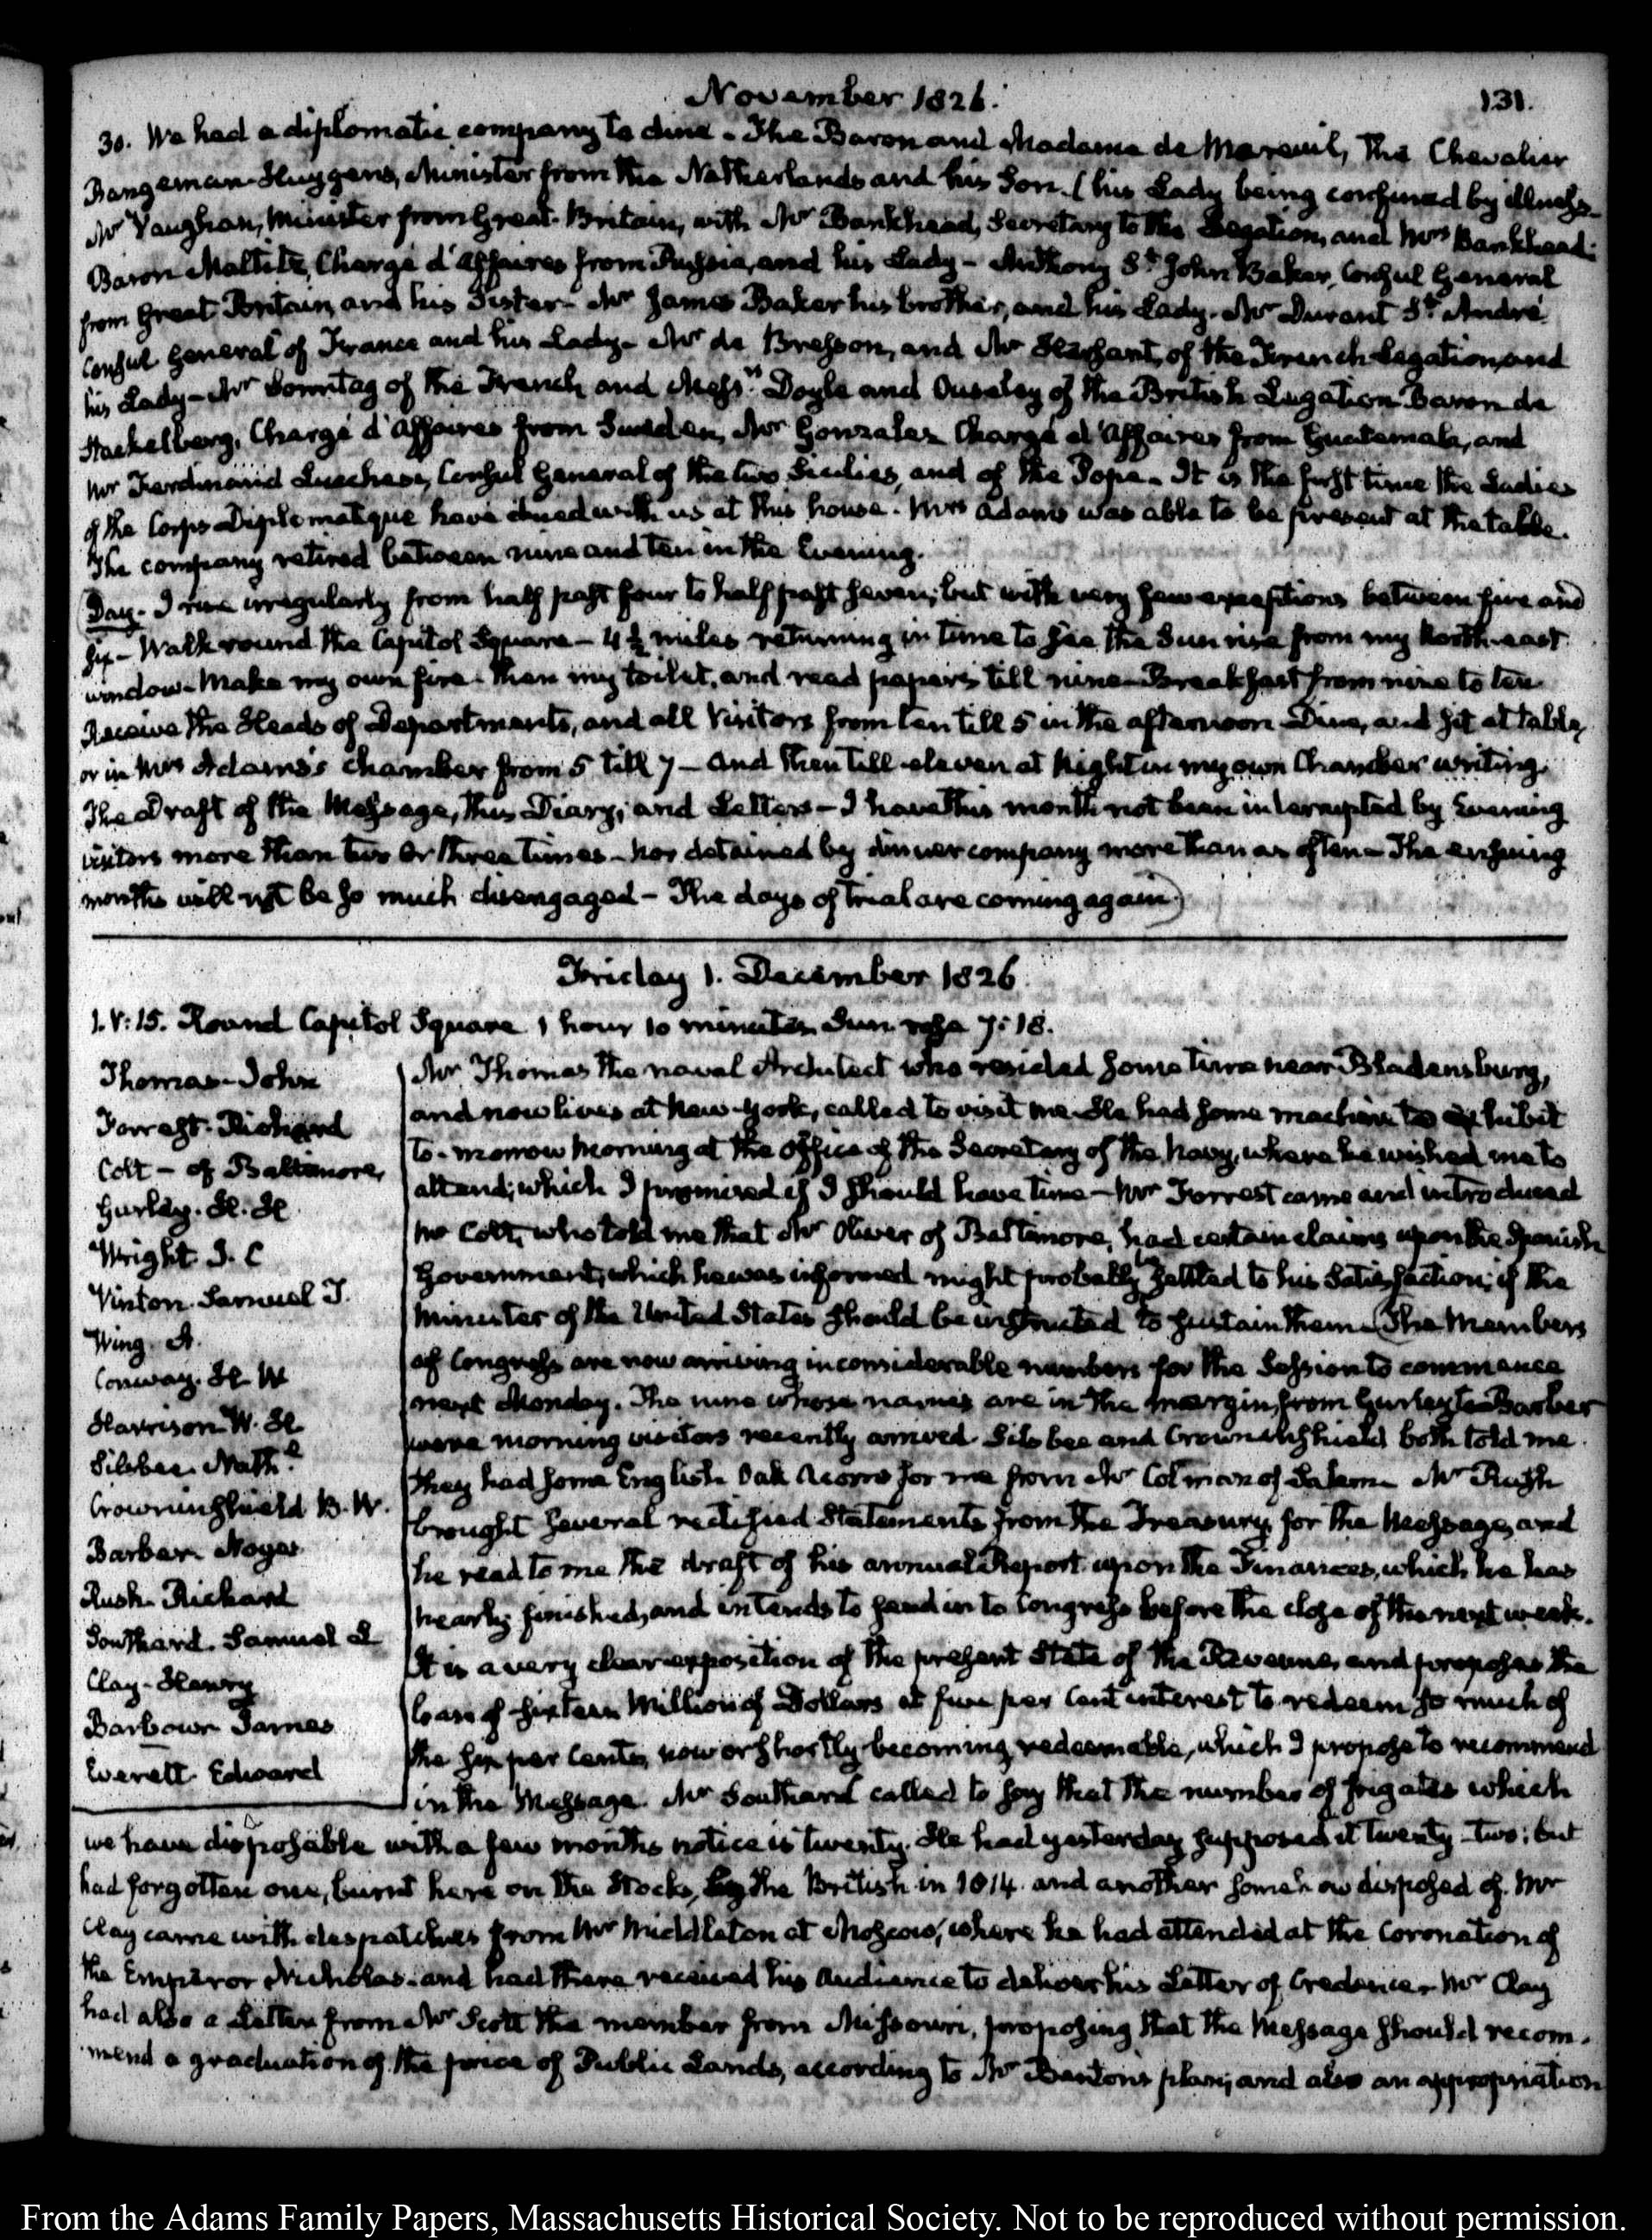 November 1826.
131.
30. We had a diplomatic company to dine - The Baron and Madame de Mareuil, The Chevalier
Bangeman Huygens, Minister from the Netherlands and his Son. (his Lady being confined by illness -
Mr Vaughan, Minister from Great-Britain, with Mr Bankhead, Secretary to the Legation, and Mrs Bankhead.
Baron Maltitz, Chargé d'Affaires from Russia, and his Lady - Anthony St John Baker, Consul General
from Great Britain, and his Sister - Mr James Baker his brother, and his Lady. Mr Durant St André
Consul General of France and his Lady - Mr de Bresson, and Mr of the French Legation, and
his Lady - Mr Sonntag of the French and Messrs Doyle and Ouseley of the British Legation Baron de
Stackelberg, Chargé d'Affaires from Sweden, Mr Gonzalez Chargé d'Affaires from Guatemala, and
Mr Ferdinand Lucchesi, Consul General of the two Sicilies, and of the Pope - It is the first time the Ladies
of the Corps Diplomatique have dined with us at this house. Mrs Adams was able to be present at the table.
The company retired between nine and ten in the Evening.
Day. I rise irregularly from half past four to half past seven; but with very few exceptions between five and
six - Walk round the Capitol Square - 4½ miles returning in time to see the Sun rise from my North-east
window. Make my own fire - Then my toilet, and read papers till nine - Breakfast from nine to ten
Receive the Heads of Departments, and all Visitors from ten till 5 in the afternoon - Dine, and sit at table,
or in Mrs Adams's chamber from 5 till 7 - and then till eleven at Night in my own Chamber writing
The Draft of the Message, this Diary, and Letters - I have this month not been interrupted by Evening
visitors more than two or three times - nor detained by dinner company more than as often - The ensuing
months will not be so much disengaged - The days of trial are coming again)
Friday 1. December 1826.
1. V:15. Round Capitol Square 1 hour 10 minutes Sun rose 7:18.
Thomas - John
Forrest. Richard
Colt - of Baltimore,
Gurley. H. H.
Wright. J. C
Vinton. Samuel F.
Wing. A.
Conway. H W
Harrison W. H
Silsbee. Nathl
Crowninshield B. W.
Barber. Noyes
Rush. Richard
Southard. Samuel L
Clay - Henry
Barbour James
Everett. Edward
Mr Thomas the naval Architect who resided some time near Bladensburg,
and now lives at New-York, called to visit me. He had some machine to exhibit
to-morrow morning at the Office of the Secretary of the Navy, where he wished me to
attend; which I promised if I should have time - Mr Forrest came and introduced
Mr Colt, who told me that Mr Oliver of Baltimore, had certain claims upon the Spanish
Government, which he was informed might probably be settled to his satisfaction, if the
Minister of the United States should be instructed to sustain them - (The Members
of Congress are now arriving in considerable numbers for the Session to commence
next Monday. The nine whose names are in the margin, from Gurley to Barber
were morning visitors recently arrived. Silsbee and Crowninshield both told me
they had some English Oak Acorns for me from Mr Colman of Salem - Mr Rush
brought several rectified Statements from the Treasury, for the Message, and
he read to me the draft of his annual Report upon the Finances, which he has
nearly finished, and intends to send in to Congress before the close of the next week.
It is a very clear exposition of the present State of the Revenue, and proposes the
loan of sixteen Million of Dollars at five per Cent interest to redeem so much of
the six per Cents, now or shortly becoming redeemable, which I propose to recommend
in the Message. Mr Southard called to say that the number of frigates which
we have disposable with a few months notice is twenty. He had yesterday supposed it twenty-two; but
had forgotten one, burnt here on the Stocks, by the British in 1814. and another somehow disposed of. Mr
Clay came with despatches from Mr Middleton at Moscow, where he had attended at the Coronation of
the Emperor Nicholas. and had there received his Audience to deliver his Letter of Credence. Mr Clay
had also a Letter from Mr Scott the member from Missouri, proposing that the Message should recom-
mend a graduation of the price of Public Lands, according to Mr Benton's plan; and also an appropriation
From the Adams Family Papers, Massachusetts Historical Society. Not to be reproduced without permission.